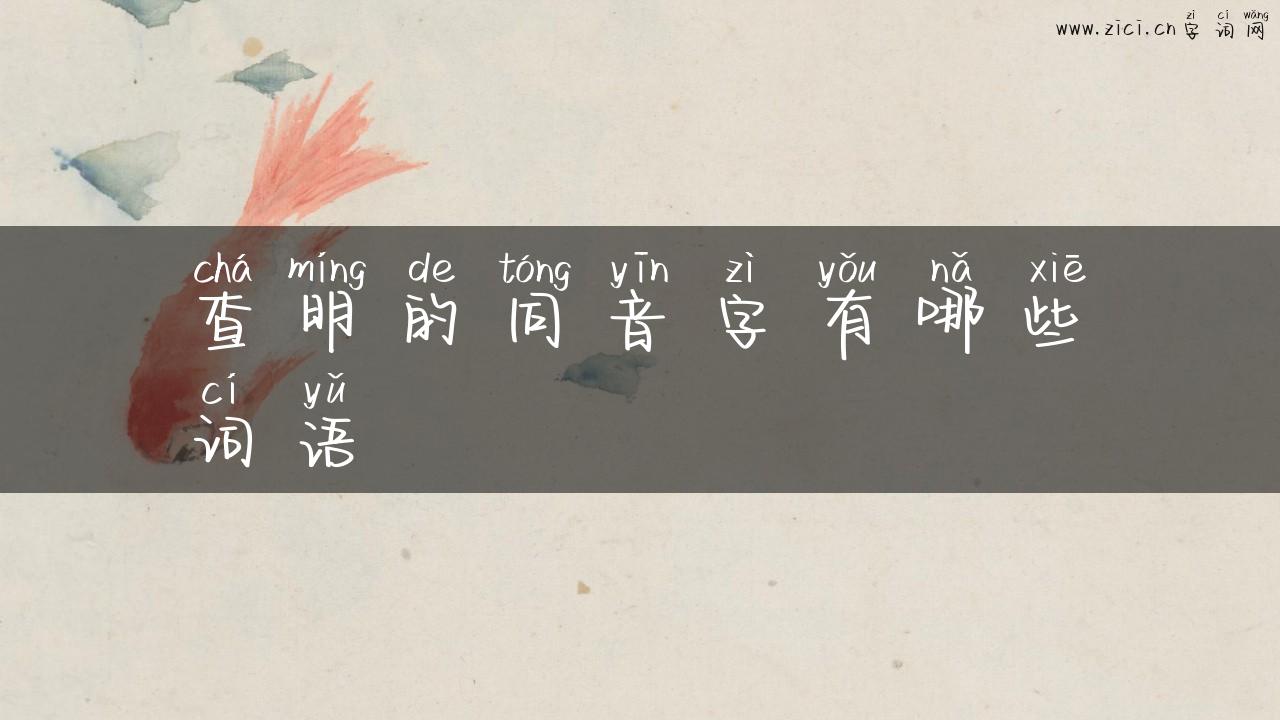 zì cí wǎng
www.zici.cn 字 词 网
chá míng de tóng yīn zì yǒu nǎ xiē
查 明 的 同 音 字 有 哪 些
cí yǔ
词 语